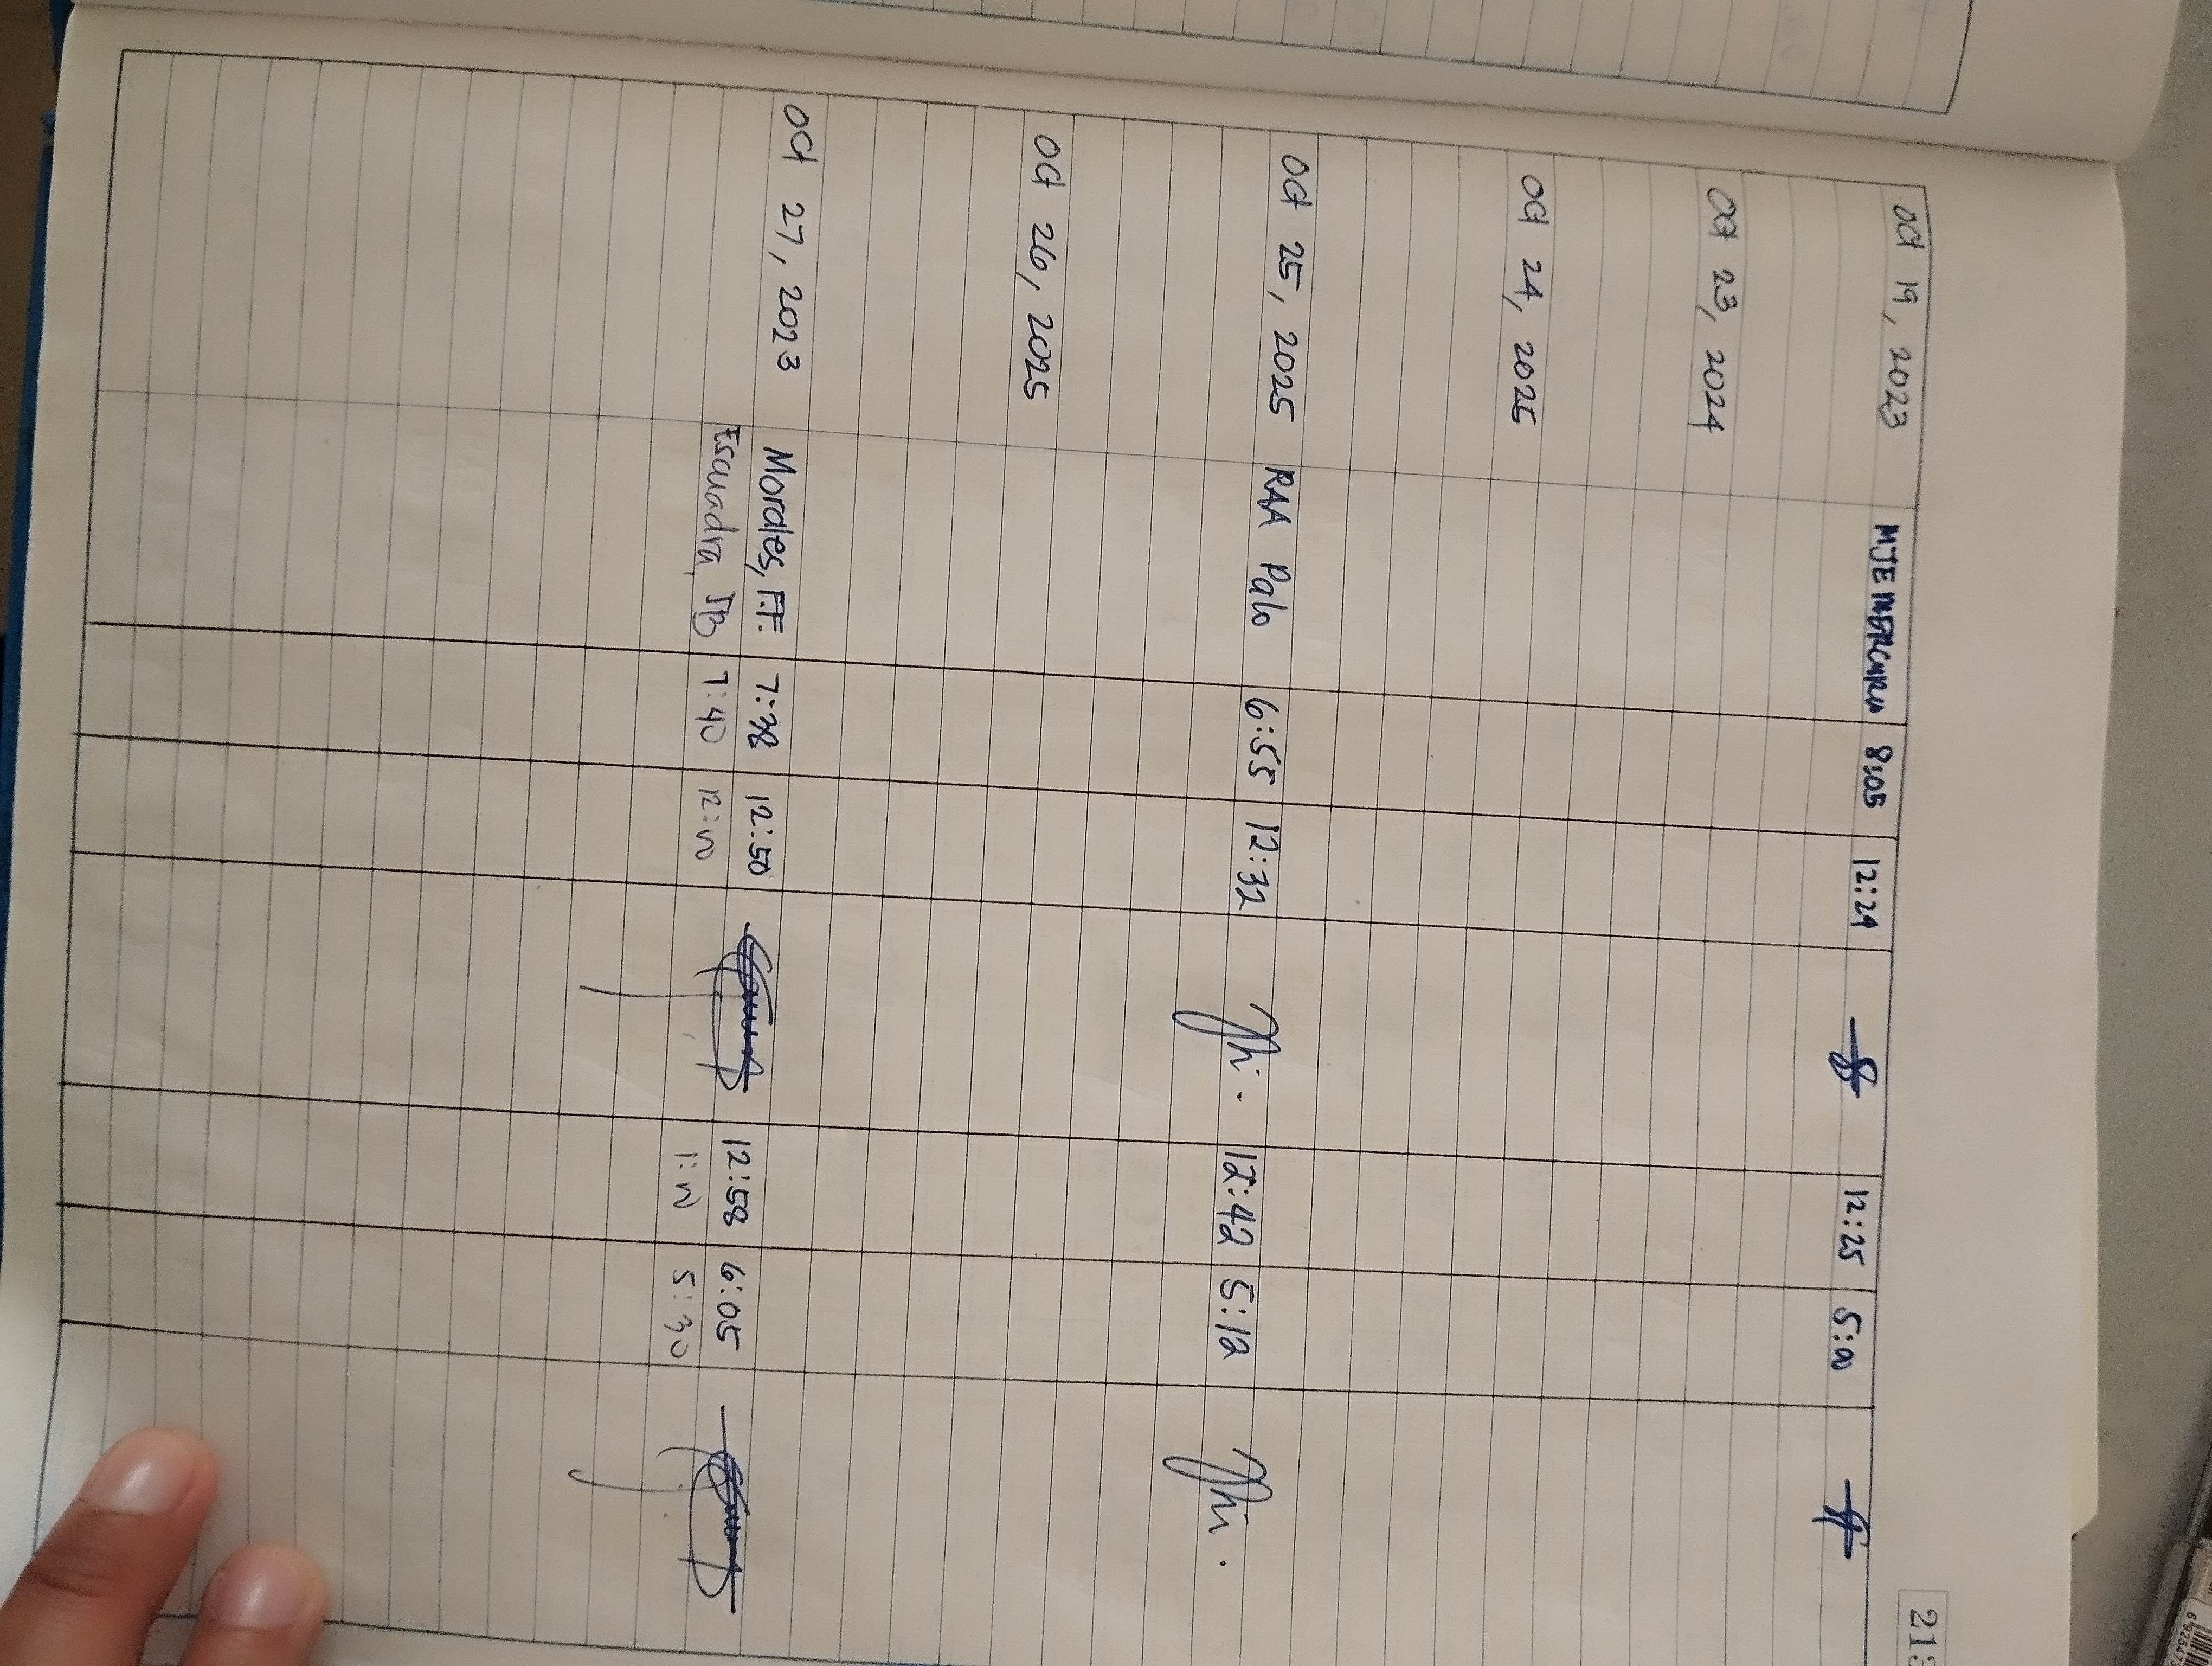 213
Oct 19, 2023 MJE 8:05 12:24 12:25 5:00
Oct 23, 2024
Oct 24, 2025
Oct 25, 2025 RAA Palo 6:55 12:32 12:42 5:12
Oct 26, 2025
Oct 27, 2023 Morales, F.F. 7:38 12:50 12:58 6:05
Escuadra, JB 7:40 12:00 1:00 5:30